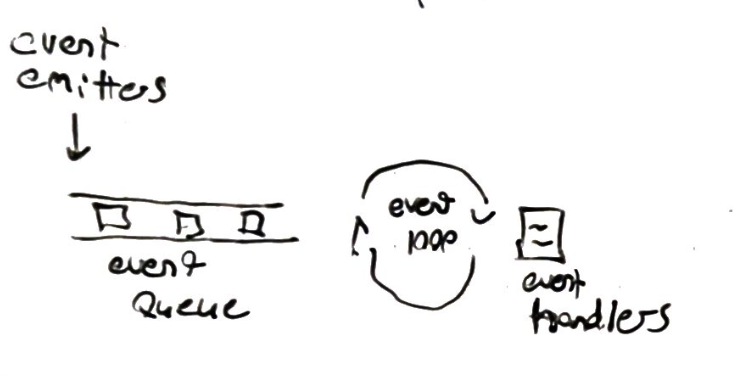 event
emitters
event
Queue
event
loop
event
handlers